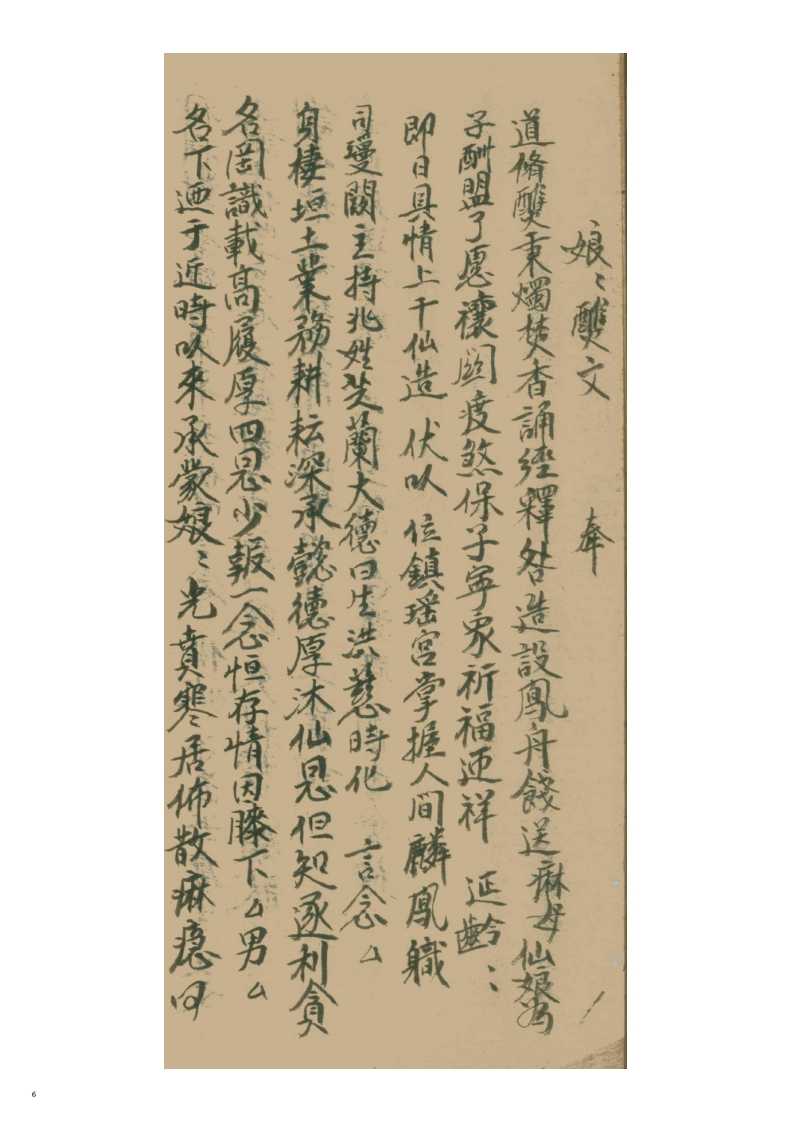 娘〻醮文　奉
道脩醮秉燭焚香誦經釋咎造設鳳舟餞送痲母仙娘為
子酬盟了愿禳関疫煞保子寧家祈福迎祥　延齡〻
即日具情上干仙造　伏以　位鎮瑶宮掌握人間麟鳳職
司闕主持兆姓芝蘭大德曰生洪慈時化　言念厶
身棲垣土業務耕耘深承懿德厚沐仙恩但知逐利貪
名罔識載高履厚四恩少報一念恒存情因膝下厶男厶
名下迺于近時以來承蒙娘〻光賁寒居佈散痲瘾
6